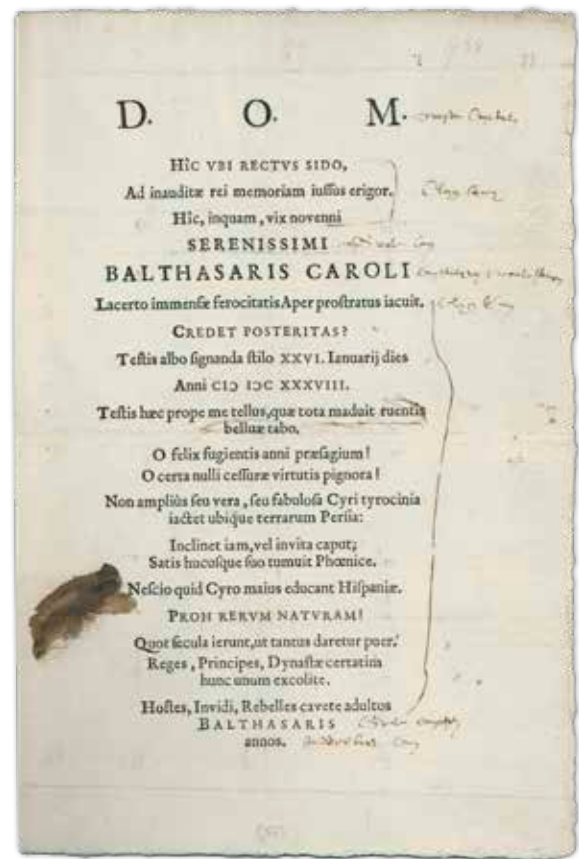 D. O. M.
Hîc VBI RECTVS SIDO,
Ad inauditæ rei memoriam iussus erigor.
Hîc, inquam, vix novenni
SERENISSIMI
BALTHASARIS CAROLI
Lacerto immensæ ferocitatis Aper prostratus iacuit.
CREDET POSTERITAS?
Testis albo signanda stilo XXVI. Ianuarij dies
Anni CIↃ IↃC XXXVIII.
Testis hæc prope me tellus, quæ tota maduit ruentis
belluæ tabo.
O felix fugientis anni præsagium!
O certa nulli cessuræ virtutis pignora!
Non ampliùs seu vera, seu fabulosa Cyri tyrocinia
iactet ubique terrarum Persia:
Inclinet iam, vel invita caput;
Satis hucusque suo tumuit Phœnice.
Nescio quid Cyro maius educant Hispaniæ.
PROH RERVM NATVRAM!
Quot secula ierunt, ut tantus daretur puer!
Reges, Principes, Dynastæ certatim
hunc unum excolite.
Hostes, Invidi, Rebelles cavete adultos
BALTHASARIS
annos.